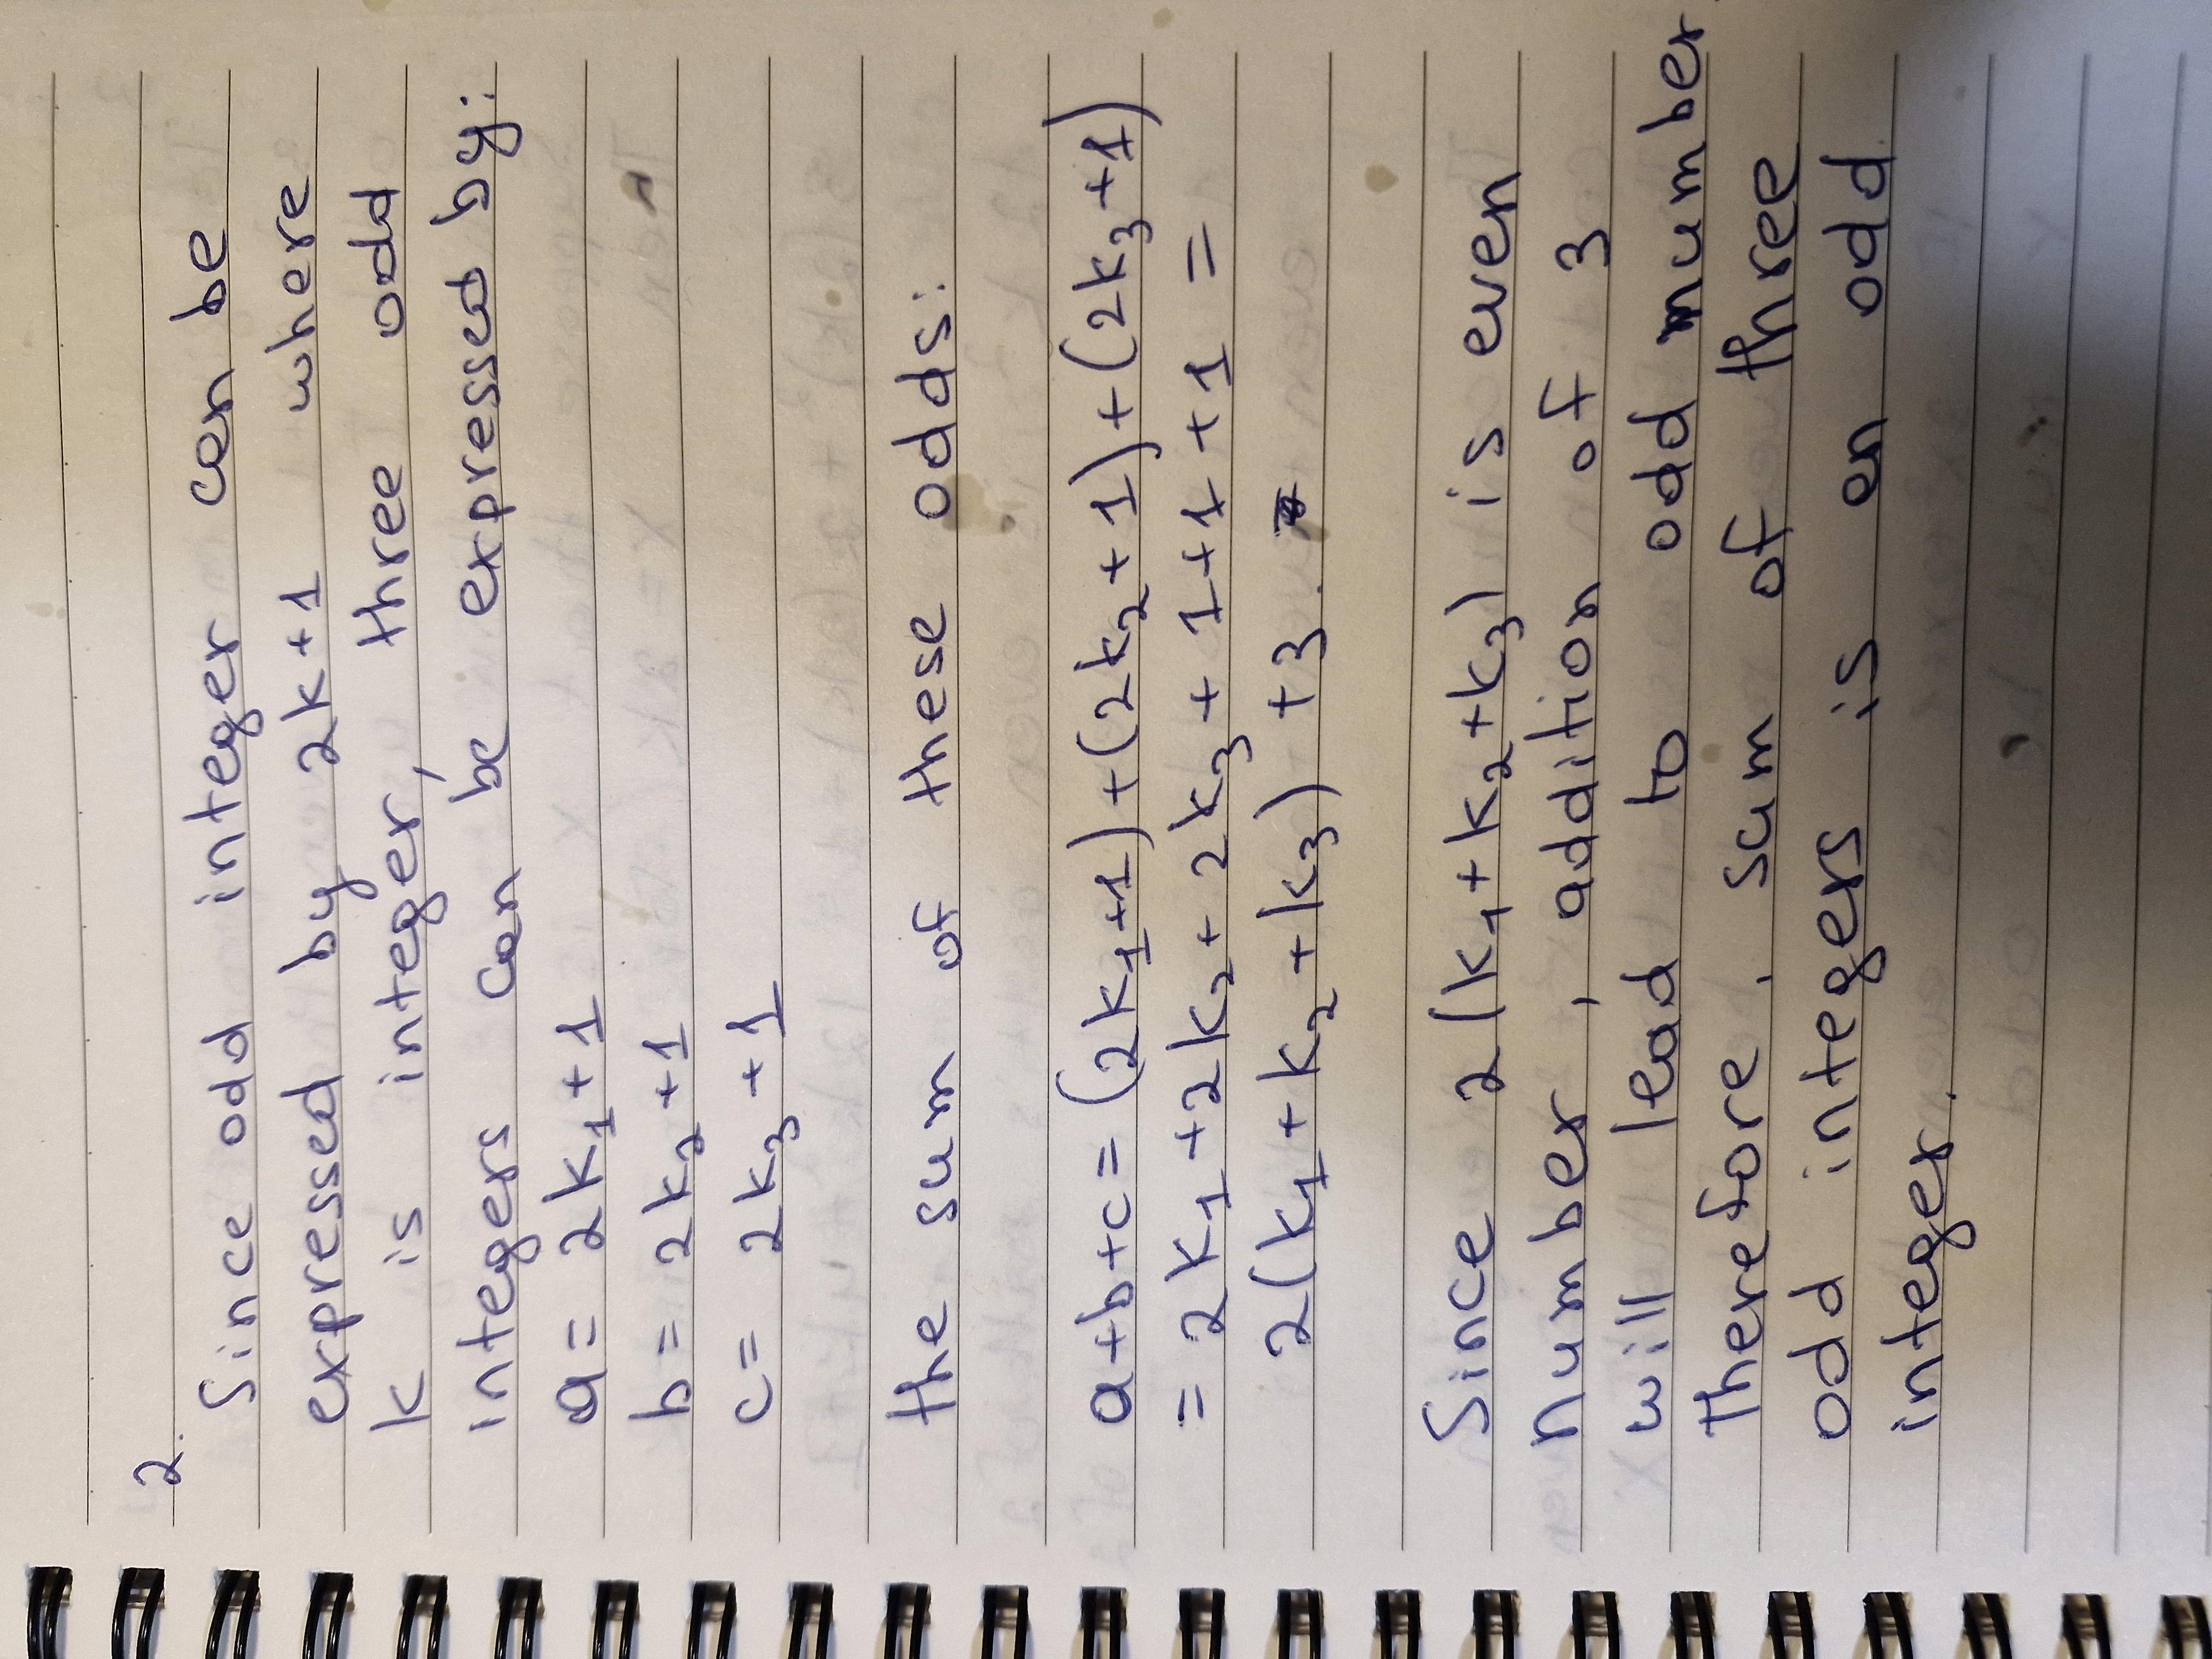 2.
Since odd integer can be
expressed by 2k+1 where
k is integer, three odd
integers can be expressed by:
a = 2k₁+1
b = 2k₂+1
c = 2k₃+1
the sum of these odds:
a+b+c = (2k₁+1)+(2k₂+1)+(2k₃+1)
= 2k₁+2k₂+2k₃+1+1+1 =
2(k₁+k₂+k₃)+3.
Since 2(k₁+k₂+k₃) is even
number, addition of 3
will lead to odd number.
Therefore, sum of three
odd integers is an odd
integer.